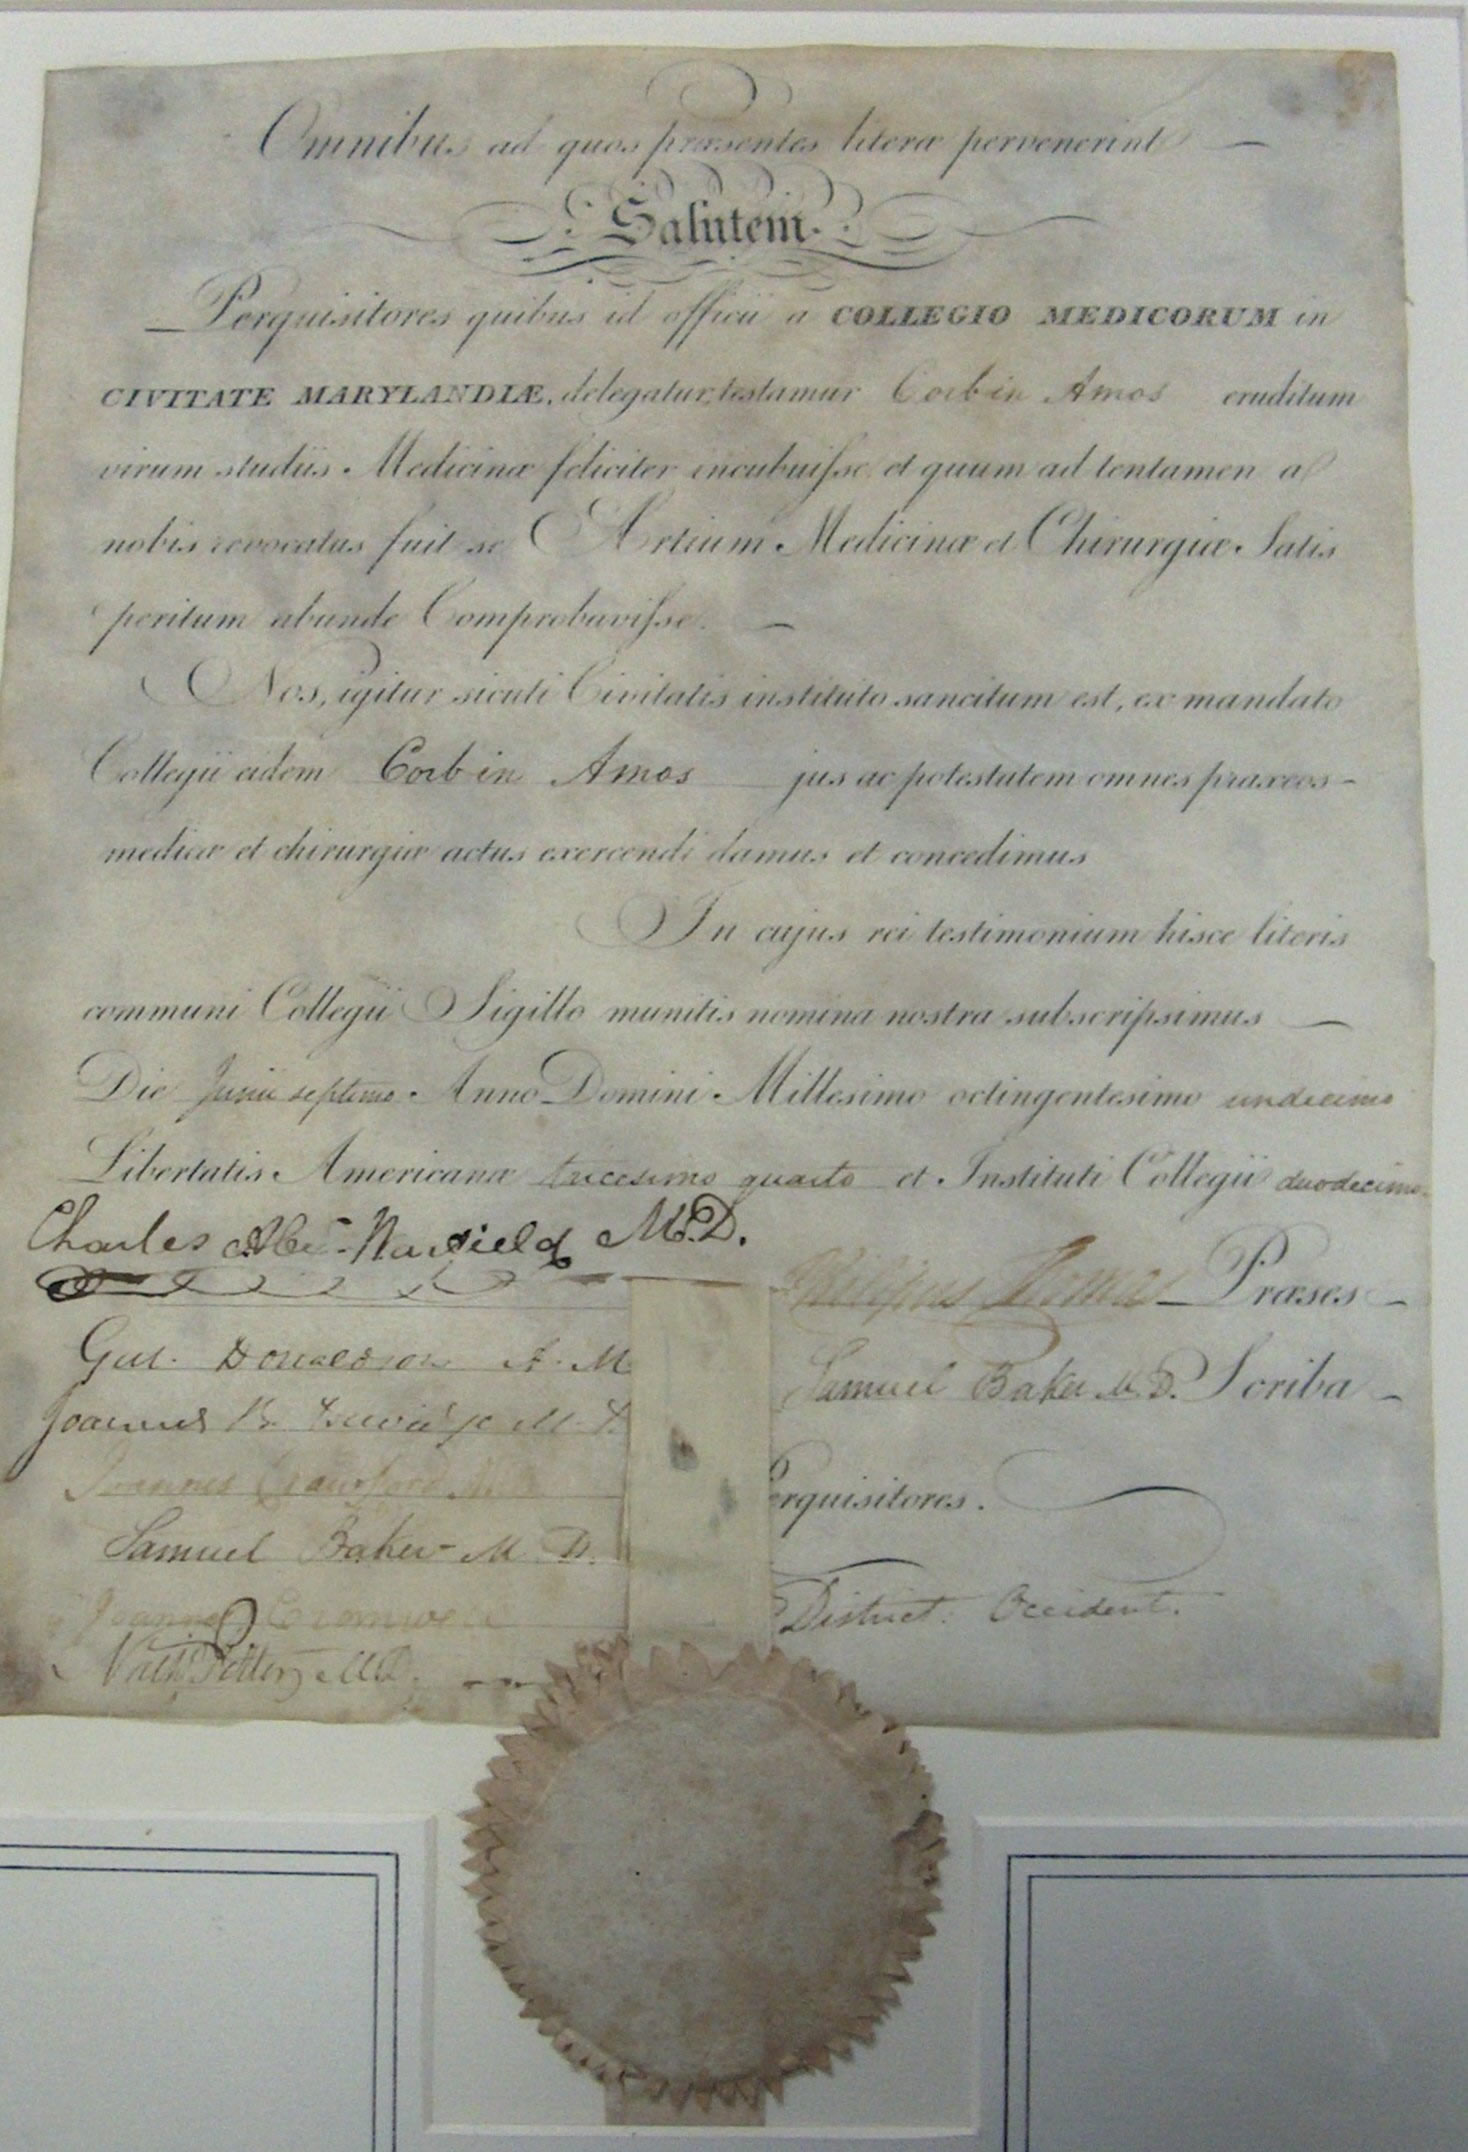 Omnibus ad quos præsentes literæ pervenerint —
Salutem.
Perquisitores quibus id officii a COLLEGIO MEDICORUM in
CIVITATE MARYLANDIÆ, delegatur, testamur Corbin Amos eruditum
virum studiis Medicinæ feliciter incubuiſse et quum ad tentamen a
nobis revocatus fuit se Artium Medicinæ et Chirurgiæ Satis
peritum abunde Comprobaviſse. —
Nos, igitur sicuti Civitatis instituto sancitum est, ex mandato
Collegii eidem Corbin Amos jus ac potestatem omnes praxeos –
medicæ et chirurgiæ actus exercendi damus et concedimus
In cujus rei testimonium hisce literis
communi Collegii Sigillo munitis nomina nostra subscripsimus —
Die Junii septimo Anno Domini Millesimo octingentesimo undecimo
Libertatis Americanæ tricesimo quarto et Instituti Collegii duodecimo
Charles M.D.
Præses –
Gul. Donaldson A. M
Samuel Baker M. D. Scriba –
Joannes B. M.
Joannes Crawford
erquisitores.
Samuel Baker M D.
Joannes Cromwell
District. Occident.
Nath. Potter M.D.